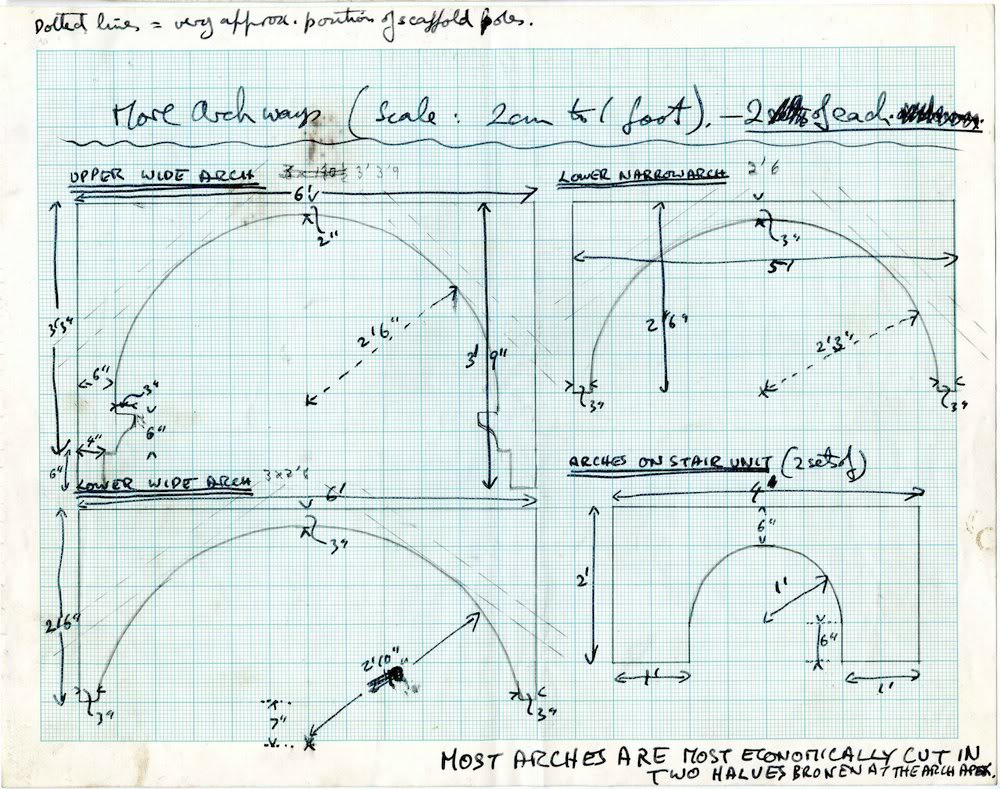 Dotted lines = very approx. position of scaffold poles.
More Archways (Scale: 2cm to 1 foot). – 2 of each.
UPPER WIDE ARCH 3' 3'9
6'
2"
3'3"
2'6"
3' 9"
6"
3"
6"
4"
6"
LOWER NARROW ARCH 2'6
3"
5'
2'6"
2'3"
3"
3"
LOWER WIDE ARCH 3 x 2'6
6'
3"
2'6"
2'10"
3"
7"
3"
ARCHES ON STAIR UNIT (2 sets of)
4'
6"
2'
1'
6"
1'
1'
MOST ARCHES ARE MOST ECONOMICALLY CUT IN
TWO HALVES BROKEN AT THE ARCH APEX.